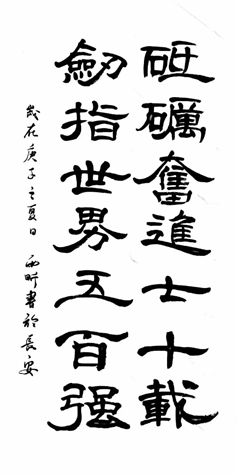 砥礪奮進士十載
劍指世界五百强
歲在庚子之夏日 雨町書於長安